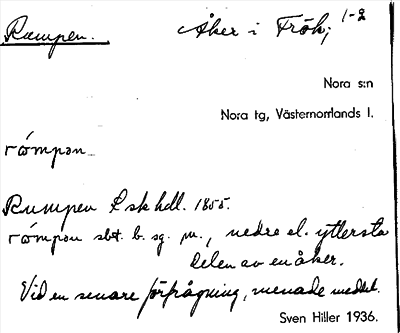 Rumpen. Åker i Frök; 1-2
Nora s:n
Nora tg, Västernorrlands l.
Rumpen L sk hdl. 1855.
sbt. b. sg. m., nedre el. yttersta
delen av en åker.
Vid en senare förfrågning, menade meddel.
Sven Hiller 1936.